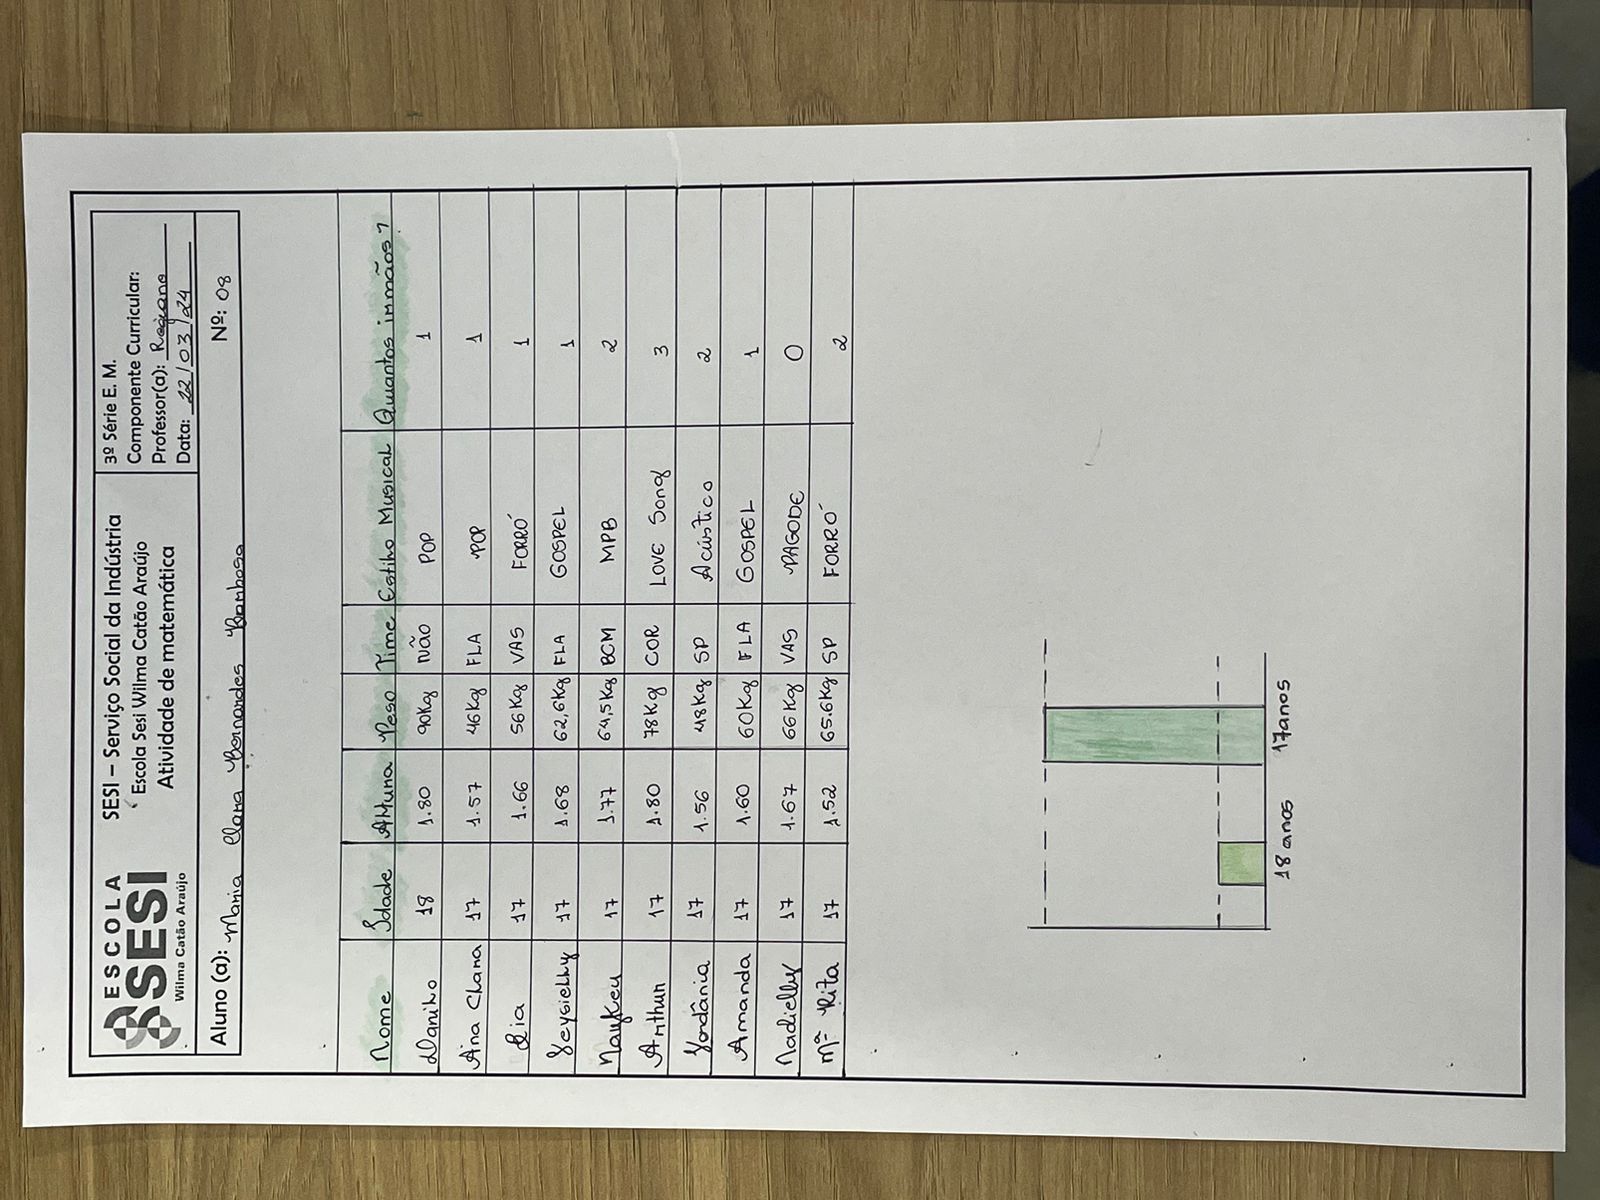 ESCOLA
SESI
Wilma Catão Araújo
SESI – Serviço Social da Indústria
Escola Sesi Wilma Catão Araújo
Atividade de matemática
3º Série E. M.
Componente Curricular:
Professor(a): Regiane
Data: 22/03/24
Aluno (a): Maria Clara Bernardes Barbosa Nº: 08
Nome Idade Altura Peso Time Estilo Musical Quantos irmãos?
Danilo 18 1.80 90Kg NÃO POP 1
Ana Clara 17 1.57 46Kg FLA POP 1
Bia 17 1.66 56Kg VAS FORRÓ 1
Geysielly 17 1.68 62,6Kg FLA GOSPEL 1
17 1.77 64,5Kg BCM MPB 2
Arthur 17 1.80 78Kg COR LOVE Song 3
Jordânia 17 1.56 48Kg SP Acústico 2
Amanda 17 1.60 60Kg FLA GOSPEL 1
Nadielly 17 1.67 66Kg VAS PAGODE 0
Mª Rita 17 1.52 65.6Kg SP FORRÓ 2
18 anos 17anos